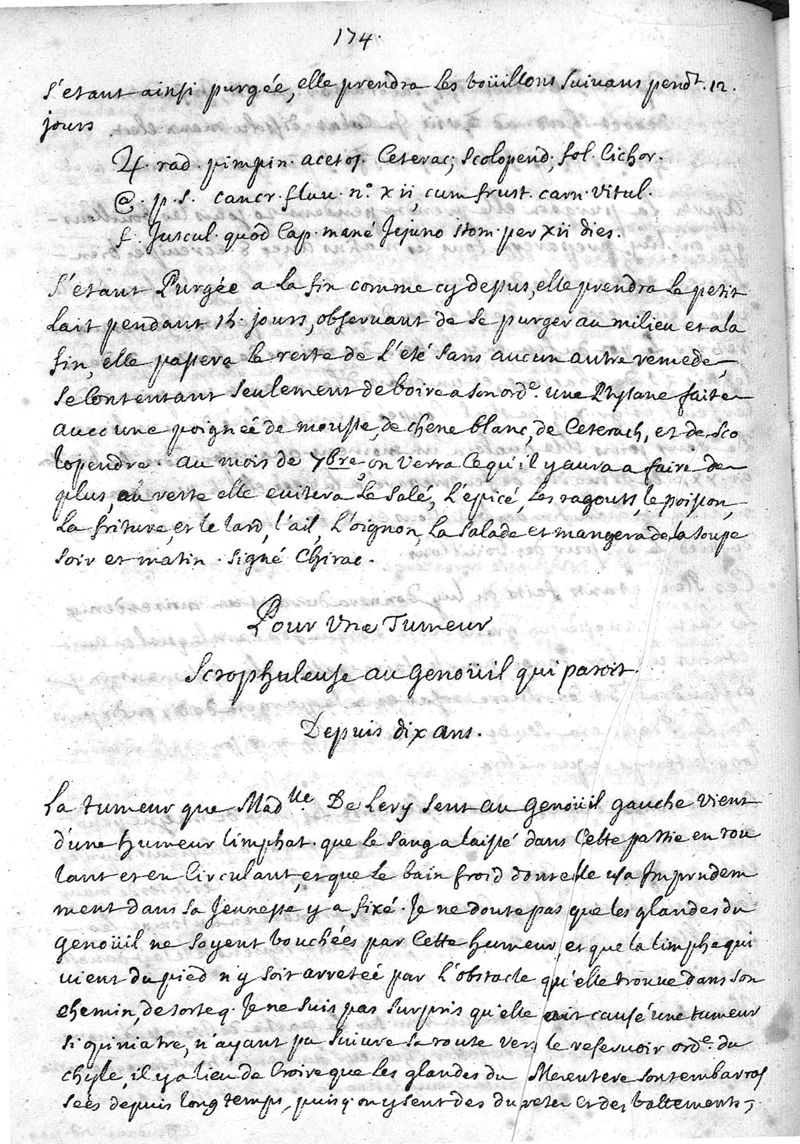 174.
S'etant ainsi purgée, elle prendra les boüillons suivans pendt. 12.
jours
♃. rad. pimpin. acetos. Ceterac; scolopend; fol. Cichor.
@. p. s. cancr. fluu. n.° xii, cum frust. carn. vitul.
f. Juscul. quod Cap. mané Jejuno stom. per xii dies.
S'etant Purgée a la fin comme cy depus, elle prendra le petit
lait pendant 15. jours, observant de se purger au milieu et a la
fin, elle passera le reste de l'été sans aucun autre remede,
se Contentant seulement de boire a son ord.e une Ptysane faite
avec une poignée de mousse, de chene blanc, de Ceterach, et de sco
lopendre. au mois de 7bre, on verra Ce qu'il y aura a faire de
plus, au reste elle evitera le salé, l'epicé, les ragouts, le poisson,
la friture, et le lard, l'ail, l'oignon, la salade et mangera de la soupe
soir et matin. signé Chirac.
Pour Une Tumeur
Scrophuleuse au Genoüil qui paroit
Depuis dix ans.
La tumeur que Madlle De Lery sent au Genoüil gauche vient
d'une humeur limphat. que le sang a laissé dans Cette partie en rou
lant et en Circulant, et que le bain froid dont elle usa Imprudem
ment dans sa Jeunesse y a fixé. Je ne doute pas que les glandes du
Genoüil ne soyent bouchées par Cette humeur et que la limphe qui
vient du pied n'y soit arretée par l'obstacle qu'elle trouve dans son
chemin, de sorteq. Je ne suis pas surpris qu'elle ait causé une tumeur
si opiniatre, n'ayant pu suivre sa route vers le reservoir ord.e du
chyle, il y a lieu de Croire que les glandes du Mesentere sont embarras
sées depuis long temps, puisq. on y sent des duretez et des battements,